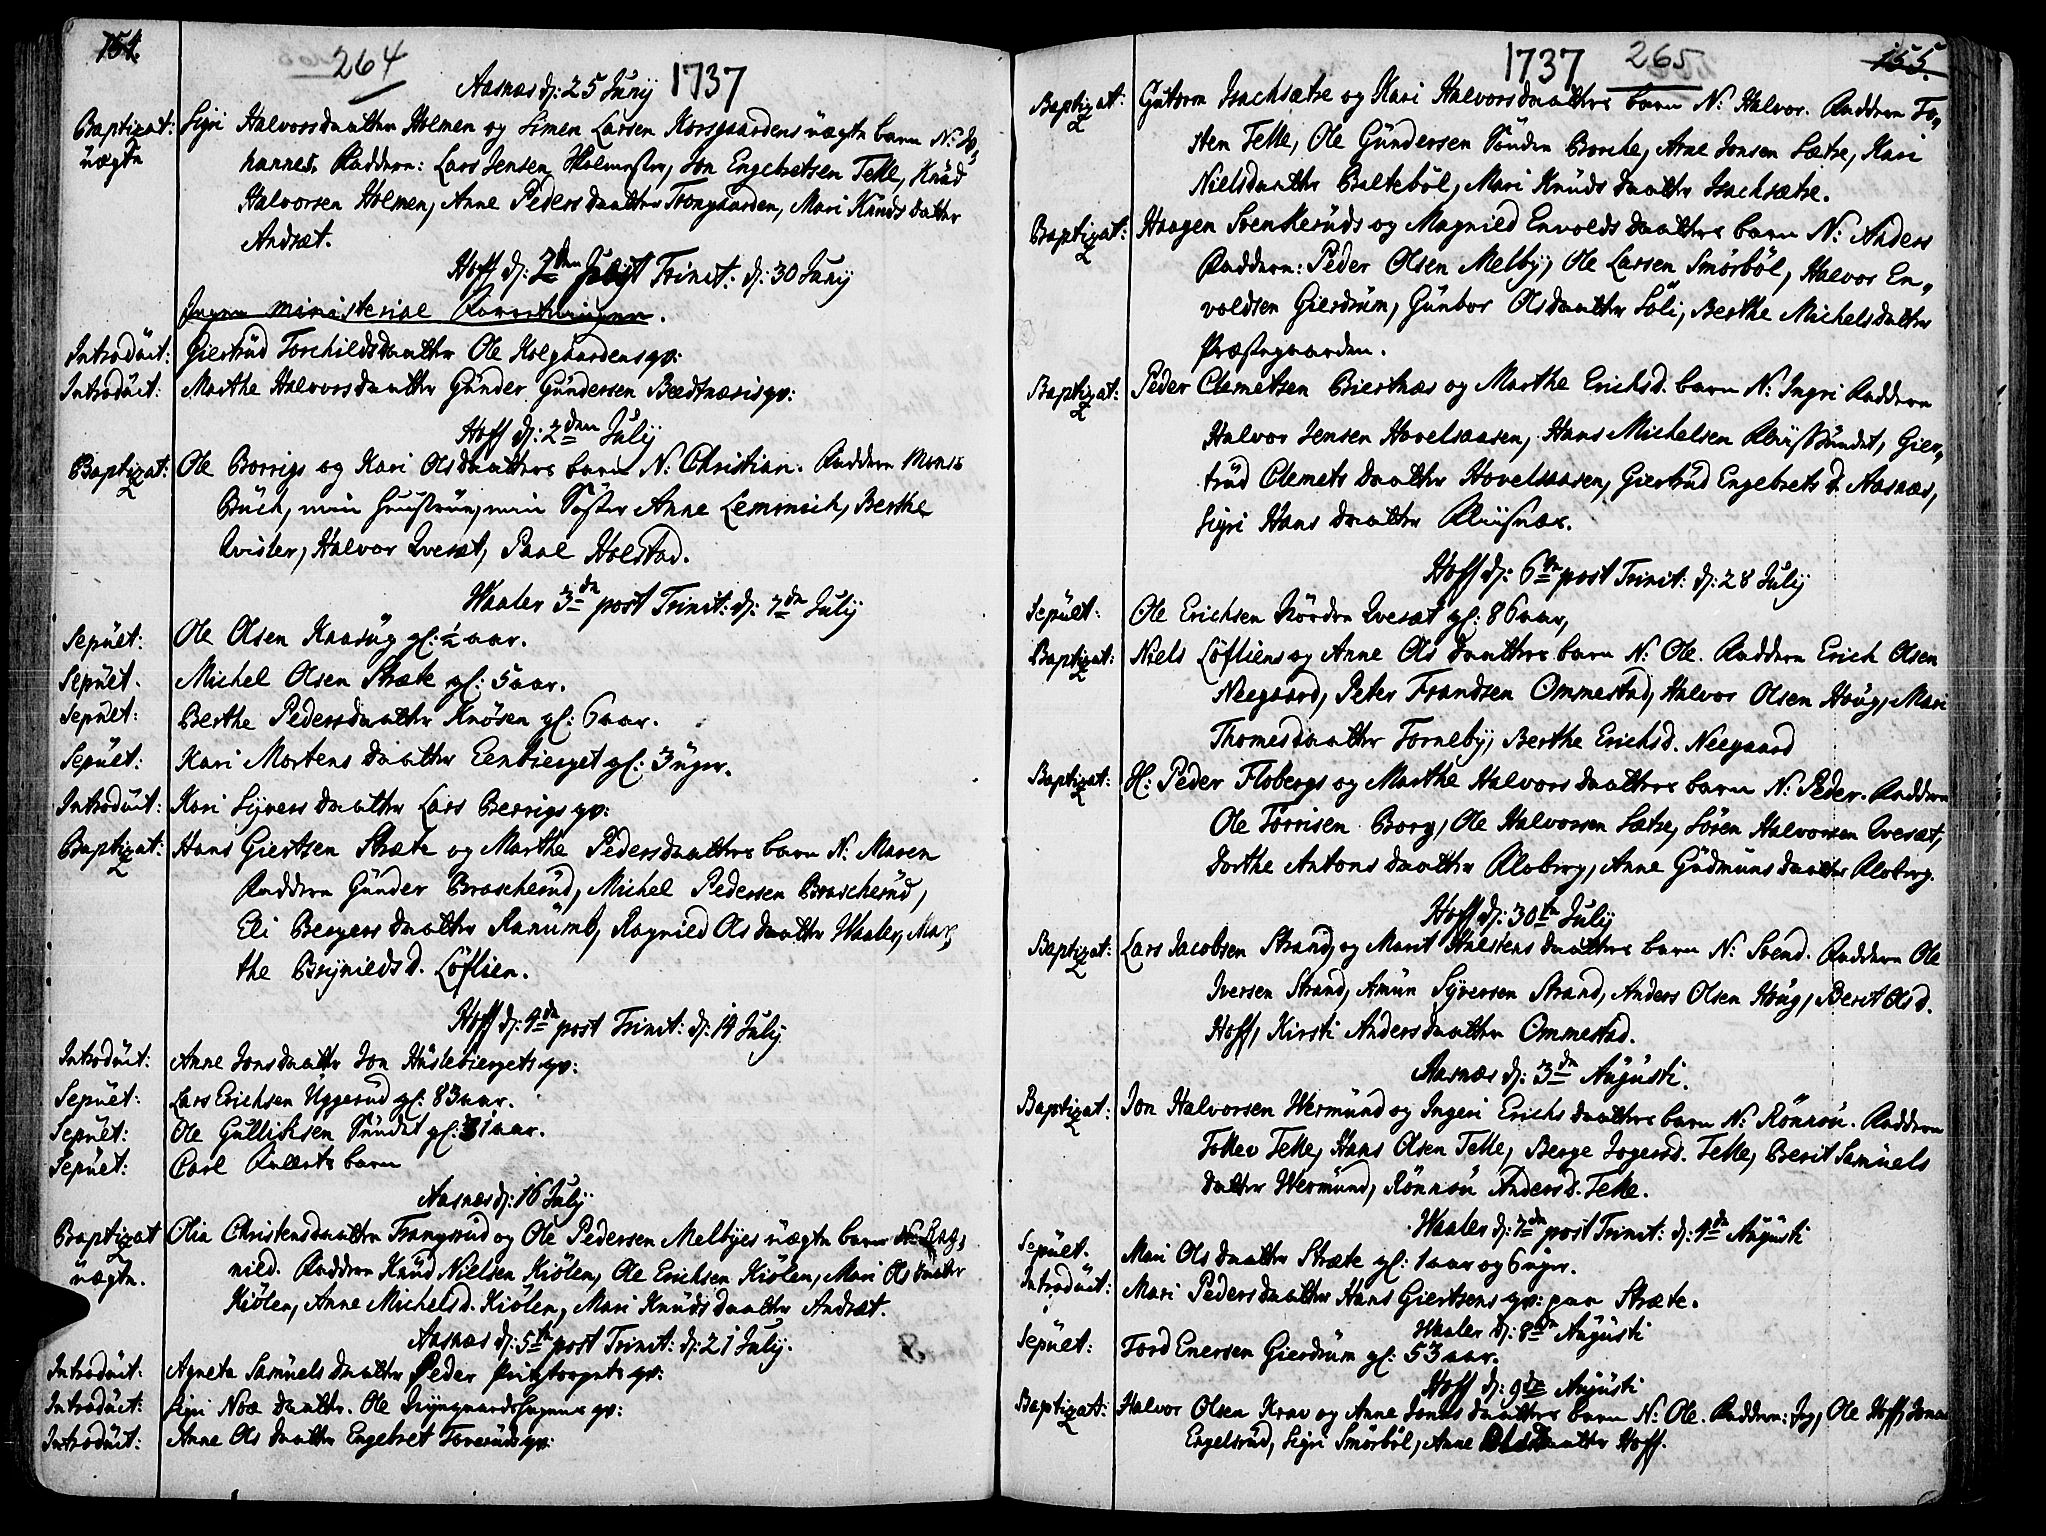 154.
264
Aasnæs d: 25 Junij 1737
Baptizat: Sigri Halvorsdaatter Holmen og Simen Larsen Korsgaardens uægte barn N: Jo,
uægte hannes. Faddere: Lars Jensen Holmester, Jon Engebretsen Telle, Knud
Halvorsen Holmen, Anne Pedersdaatter Frongaarden, Mari Knudsdatter
Andræt.
Hoff d: Trinit: d: 30 Junij
Ingen ministerial Forretninger.
Introduit: Giertrud Torchildsdaatter Ole Kolgaardens qv:
Introduit: Marthe Halvorsdaatter Gunder Gundersen Bædtnæsis qv:
Hoff d: 2den Julij
Baptizat: Ole Borrigs og Kari Olsdaatters barn N: Christian. Faddere Mons:
Buch, min Hustrue, min Søster Anne Lemmich, Berthe
Qvisler, Halvor Qvesæt, Paal Holstad.
Waaler 3de post Trinit: d: 7de Julij
Sepult: Ole Olsen Kaasug gl: ½ aar.
Sepult. Michel Olsen Stræte gl: 5 aar.
Sepult: Berthe Pedersdaatter Knøsen gl: 6 aar.
Sepult: Kari Mortensdaatter Eenbierget gl: 3 uger.
Introduit: Kari Syversdaatter Lars Berrigs qv:
Baptizat: Hans Giertsen Stræte og Marthe Pedersdaatters barn N: Maren
Faddere Gunder Brascherud, Michel Pedersen Brascherud,
Eli Bergersdaatter Ranumb, Ragnild Olsdaatter Waaler, Mar,
the Brynieldsd. Løflien.
Hoff d: 4de post Trinit: d: 14 Julij
Introduit: Anne Jonsdaatter Jon Huslebiergets qv:
Sepult: Lars Erichsen Uggerud gl: 83 aar.
Sepult: Ole Gullichsen Sundet gl: 31 aar.
Sepult: Carl barn
Aasnæs d: 16 Julij
Baptizat Olia Christensdaatter Frangsrud og Ole Pedersen Melbyes uægte barn N: Rag,
uægte. nild. Faddere Knud Nielsen Kiølen, Ole Erichsen Kiølen, Mari Olsdaatter
Kiølen, Anne Michelsd. Kiølen, Mari Knudsdaatter Andræt.
Aasnæs d: 5te post Trinit: d: 21 Julij.
Introduit: Agneta Samuelsdaatter Peder qv:
Introduit: Sigri Noædaatter. Ole qv:
Introduit: Anne Olsdaatter Engebret Foveruds qv:
155.
1737 265
Baptizat: Guttorm Isachsætre og Kari Halvorsdaatters barn N: Halvor. Faddere To,
sten Telle, Ole Gundersen Søndre Borche, Arne Jonsen Sætre, Kari
Nielsdaatter Baltebøl, Mari Knudsdaatter Isachsætre.
Baptizat: Haagen Svenkeruds og Magnild Envoldsdaatters barn N: Anders
Faddere: Peder Olsen Melby, Ole Larsen Smørbøl, Halvor En,
voldsen Gierdrum, Gunbor Olsdaatter Soli, Berthe Michelsdatter
Præstegaarden.
Baptizat: Peder Clemetsen Biertnæs og Marthe Erichsd. barn N: Ingri Faddere
Halvor Jensen Hovelsaasen, Hans Michelsen Flussundet, Gier,
trud Clemetsdaatter Hovelsaasen, Giertrud Engebretsd. Aasnæs,
Sigri Hansdaatter Flusnæs.
Hoff d: 6te post Trinit: d: 28 Julij
Sepult: Ole Erichsen Nordre Qvesæt gl: 86 aar,
Baptizat: Niels Løfliens og Anne Olsdaatters barn N: Ole. Faddere Erich Olsen
Neegaard, Peter Frandsen Ommestad, Halvor Olsen Houg, Mari
Thomesdaatter Torneby, Berthe Erichsd. Neegaard
Baptizat: Hl: Peder Flobergs og Marthe Halvorsdaatters barn N: Peder. Faddere
Ole Torrisen Borg, Ole Halvorsen Sætre, Søren Halvorsen Qvesæt,
Dorthe Antonsdaatter Floberg, Anne Gudmunsdaatter Floberg.
Hoff d: 30te Julij
Baptizat: Lars Jacobsen Strand og Marit Halstensdaatters barn N: Svend. Faddere Ole
Iversen Strand, Amun Syversen Strand, Anders Olsen Houg, Berit Olsd.
Hoff, Kirsti Andersdaatter Ommestad.
Aasnæs d: 3de Augusti.
Baptizat: Jon Halvorsen Wermund og Ingeri Erichsdaatters barn N: Rønnou. Faddere
Tollev Telle, Hans Olsen Telle, Berge Jogersd. Telle, Berit Samuels
datter Wermund, Rønnou Andersd. Telle.
Waaler d: 7de post Trinit: d: 4de Augusti
Sepult. Mari Olsdaatter Stræte gl: 1 aar og 6 uger.
Introduit: Mari Pedersdaatter Hans Giertsens qv: paa Stræte.
Waaler d: 8de Augusti
Sepult: Tord Enersen Gierdrum gl: 53 aar.
Hoff d: 9de Augusti
Baptizat: Halvor Olsen Krav og Anne Jonasdaatters barn N: Ole. Faddere: Jeg, Ole Hoff, Jonas
Engelsrud, Sigri Smørbøl, Anne Hoff.